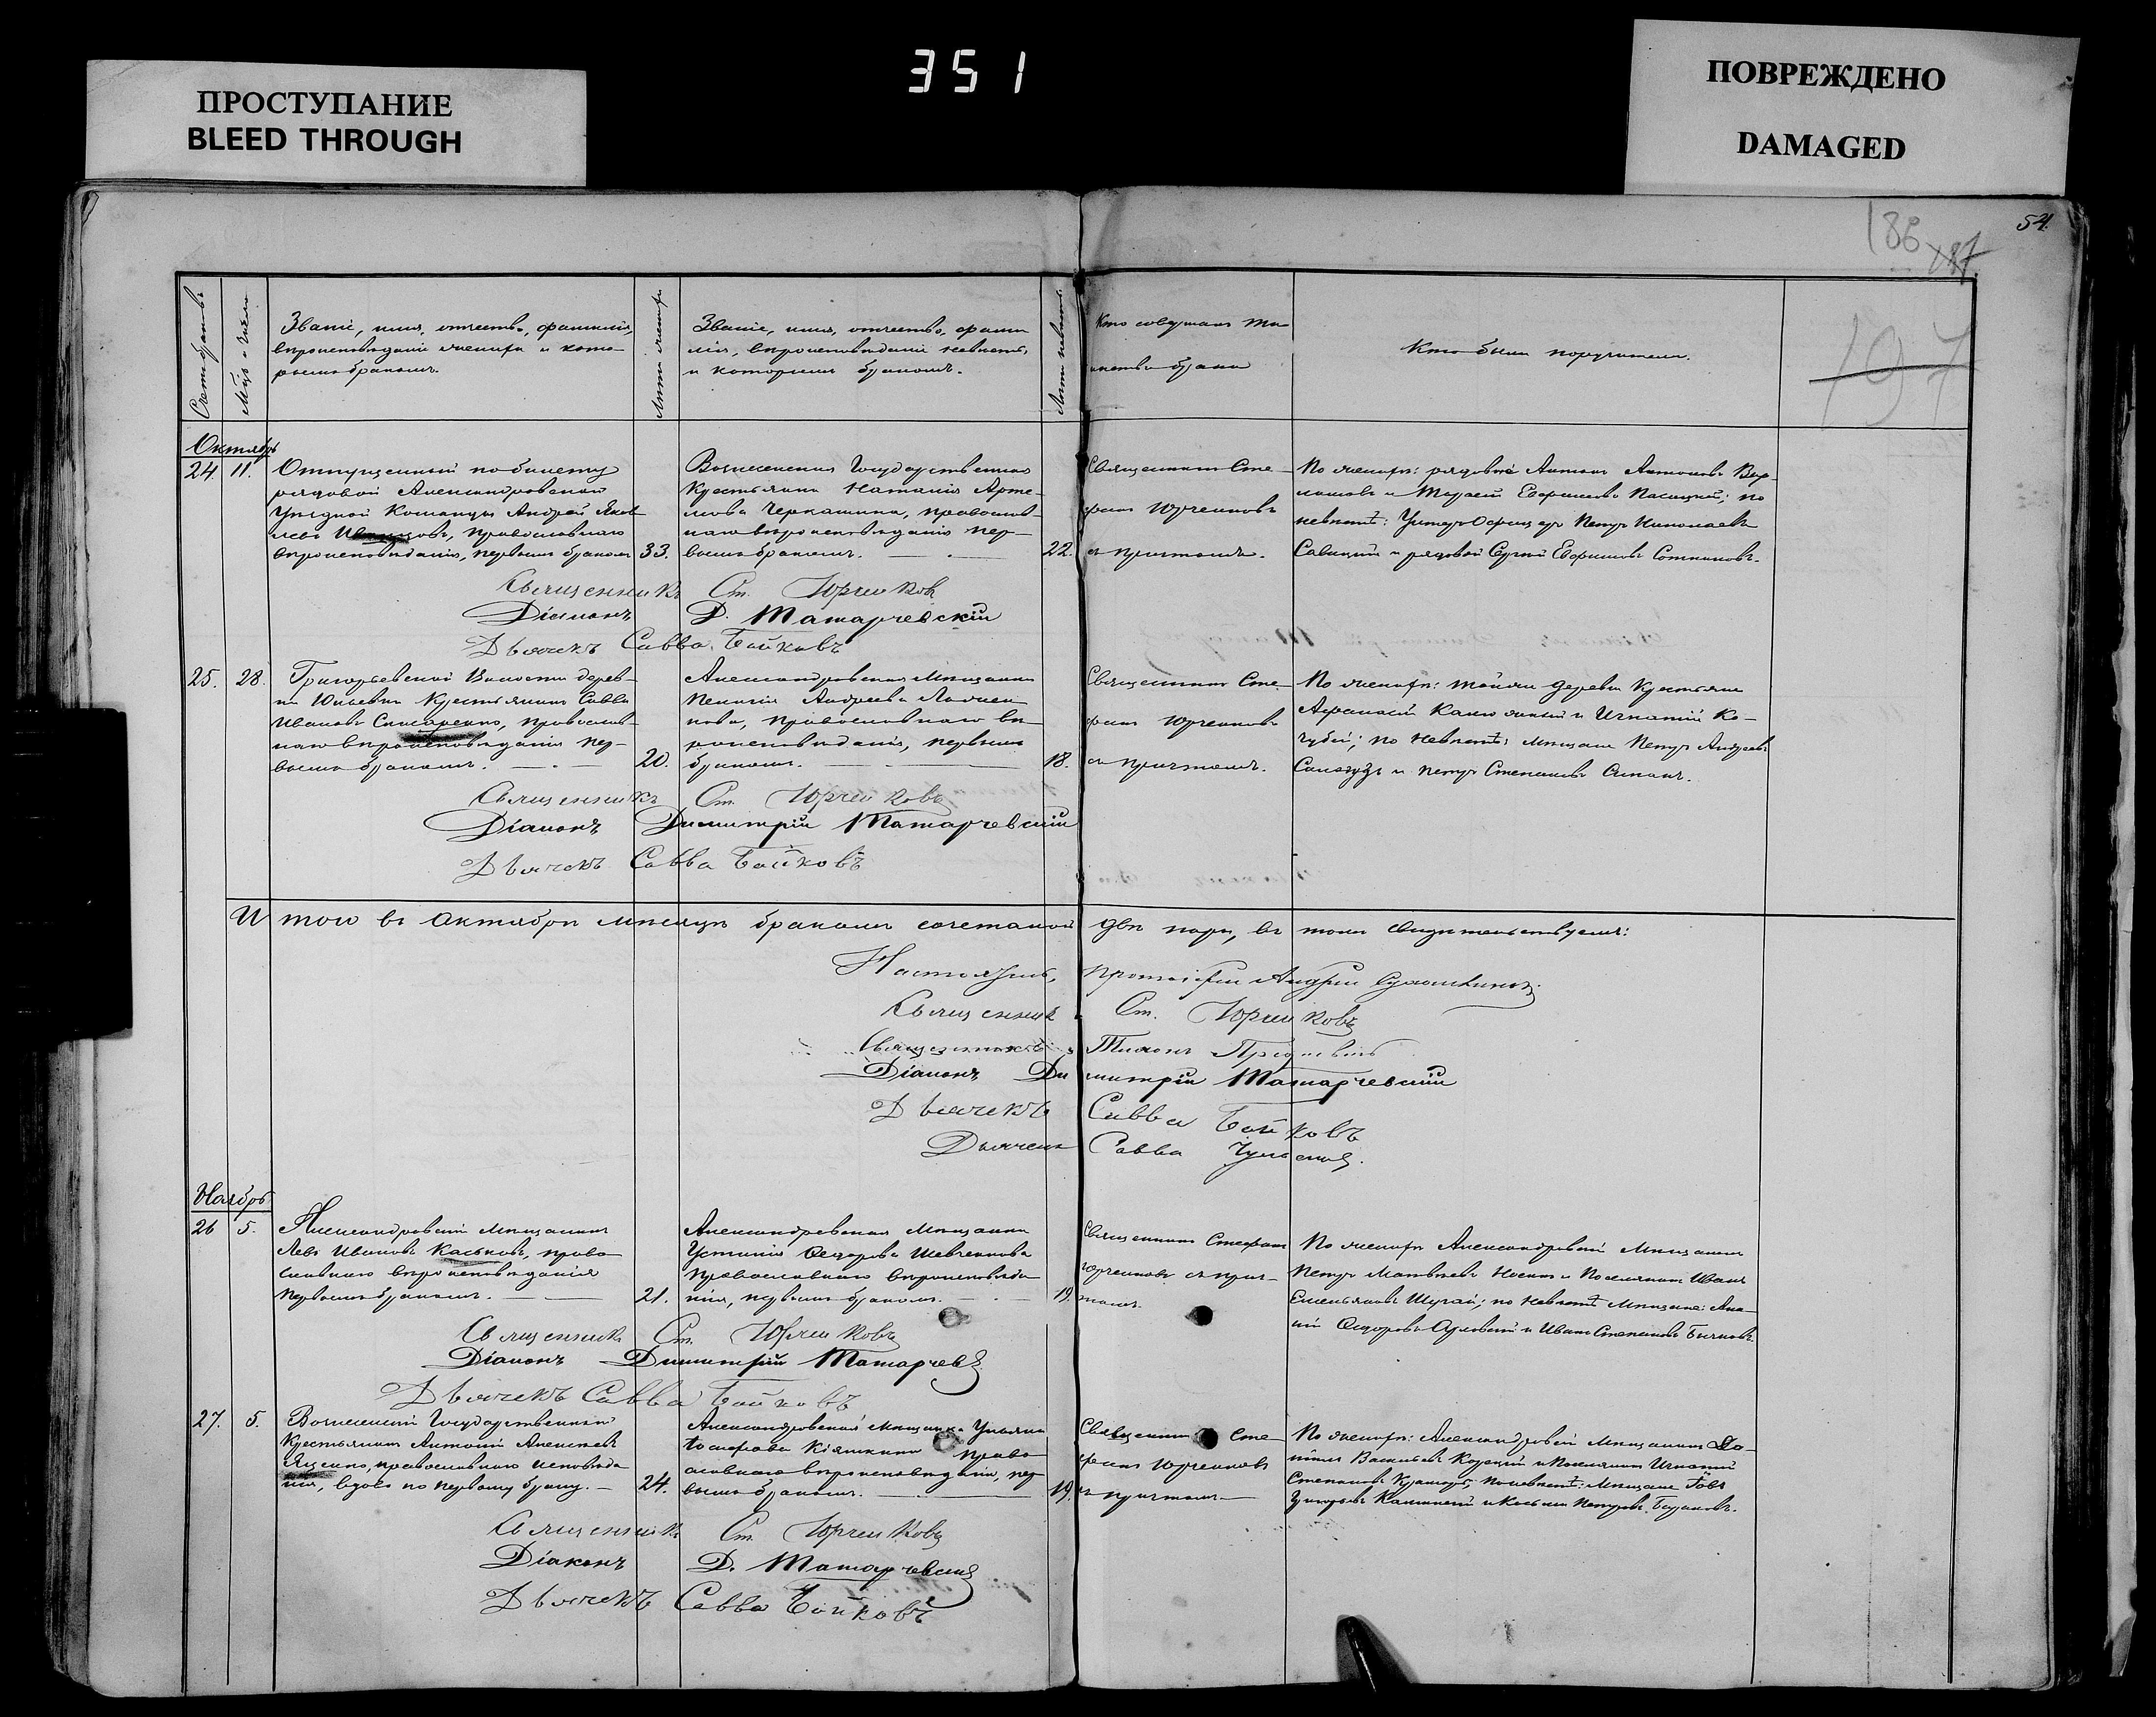 351
ПРОСТУПАНИЕ
BLEED THROUGH
ПОВРЕЖДЕНО
DAMAGED
54.
186
187
197
Счетъ браковъ
Мѣсяцъ и число
Званіе, имя, отчество, фамилія,
вѣроисповѣданіе жениха и кото-
рымъ бракомъ.
Лѣта жениха
Званіе, имя, отчество, фами
лія, вѣроисповѣданіе невѣсты,
и которымъ бракомъ.
Лѣта невѣсты
Кто совершалъ та
инство брака
Кто были поручители.
Октябрь
24. 11.
Отпущенный по билету
рядовой Александровской
Уѣздной Команды Андрей Яков
левъ православнаго
вѣроисповѣданія, первымъ бракомъ
33.
Вознесенская Государственная
Крестьянка Наталія Арте-
мова Черкашина, православ-
наго вѣроисповѣданія пер-
вымъ бракомъ.
22.
Священникъ Сте-
фанъ Юрченковъ
съ причтомъ.
По женихѣ: рядовые Антонъ Антоновъ
и Ефимовъ по
невѣстѣ: Унтеръ Офицеръ Петръ Николаевъ
Савицкій и рядовой Сергій Ефимовъ Сотниковъ.
Священникъ Ст. Юрченковъ
Діаконъ Д. Татарчевскій
Дьячекъ Савва Бойковъ
25. 28.
Григорьевской Волости дерев-
ни Юльевки Крестьянинъ Савва
Ивановъ православ-
наго вѣроисповѣданія пер-
вымъ бракомъ.
20.
Александровская Мѣщанка
Пелагія Андреева
православнаго вѣ-
роисповѣданія, первымъ
бракомъ.
18.
Священникъ Сте-
фанъ Юрченковъ
съ причтомъ.
По женихѣ: тойже деревни Крестьяне
Афанасій и Игнатій Ко-
чубей; по невѣстѣ: мѣщане Петръ Андреевъ
и Петръ Степановъ
Священникъ Ст. Юрченковъ
Діаконъ Димитрій Татарчевскій
Дьячекъ Савва Бойковъ
Итого въ Октябрѣ мѣсяцѣ бракомъ сочетаной двѣ пары, въ томъ свидѣтельствуемъ:
Настоятель, протоіерей Андрей
Священникъ Ст. Юрченковъ
Священникъ Тихонъ
Діаконъ Димитрій Татарчевскій
Дьячекъ Савва Бойковъ
Дьячекъ Савва
Ноябрь
26 5.
Александровскій мѣщанинъ
Левъ Ивановъ Каськовъ, право-
славнаго вѣроисповѣданія
первымъ бракомъ.
21.
Александровская Мѣщанка
Устинія Ѳедорова Шевченкова
православнаго вѣроисповѣда
нія, первымъ бракомъ.
19.
Священникъ Стефанъ
Юрченковъ съ прич-
томъ.
По женихѣ Александровскій мѣщанинъ
Петръ Матвѣевъ Носикъ и Поселянинъ Иванъ
Емельяновъ Шугай; по невѣстѣ мѣщане: Ана-
ній Ѳедоровъ и Иванъ Степановъ Бычковъ.
Священникъ Ст. Юрченковъ
Діаконъ Димитрій Татарчев
Дьячекъ Савва Бойковъ
27. 5.
Вознесенскій Государственный
Крестьянинъ Антоній Алексѣевъ
Яценко, православнаго исповѣда
нія, вдовъ по первому браку.
24.
Александровской мѣщанка Ульяна
право
славнаго вѣроисповѣданія, пер
вымъ бракомъ.
19.
Священникъ Сте
фанъ Юрченковъ
съ причтомъ
По женихѣ: Александровскій мѣщанинъ Да-
ніилъ Васильевъ и Поселянинъ Игнатій
Степановъ по невѣстѣ: мѣщане Іовъ
Григорьевъ Калинскій и Косьма Петровъ
Священникъ Ст. Юрченковъ
Діаконъ Д. Татарчевскій
Дьячекъ Савва Бойковъ